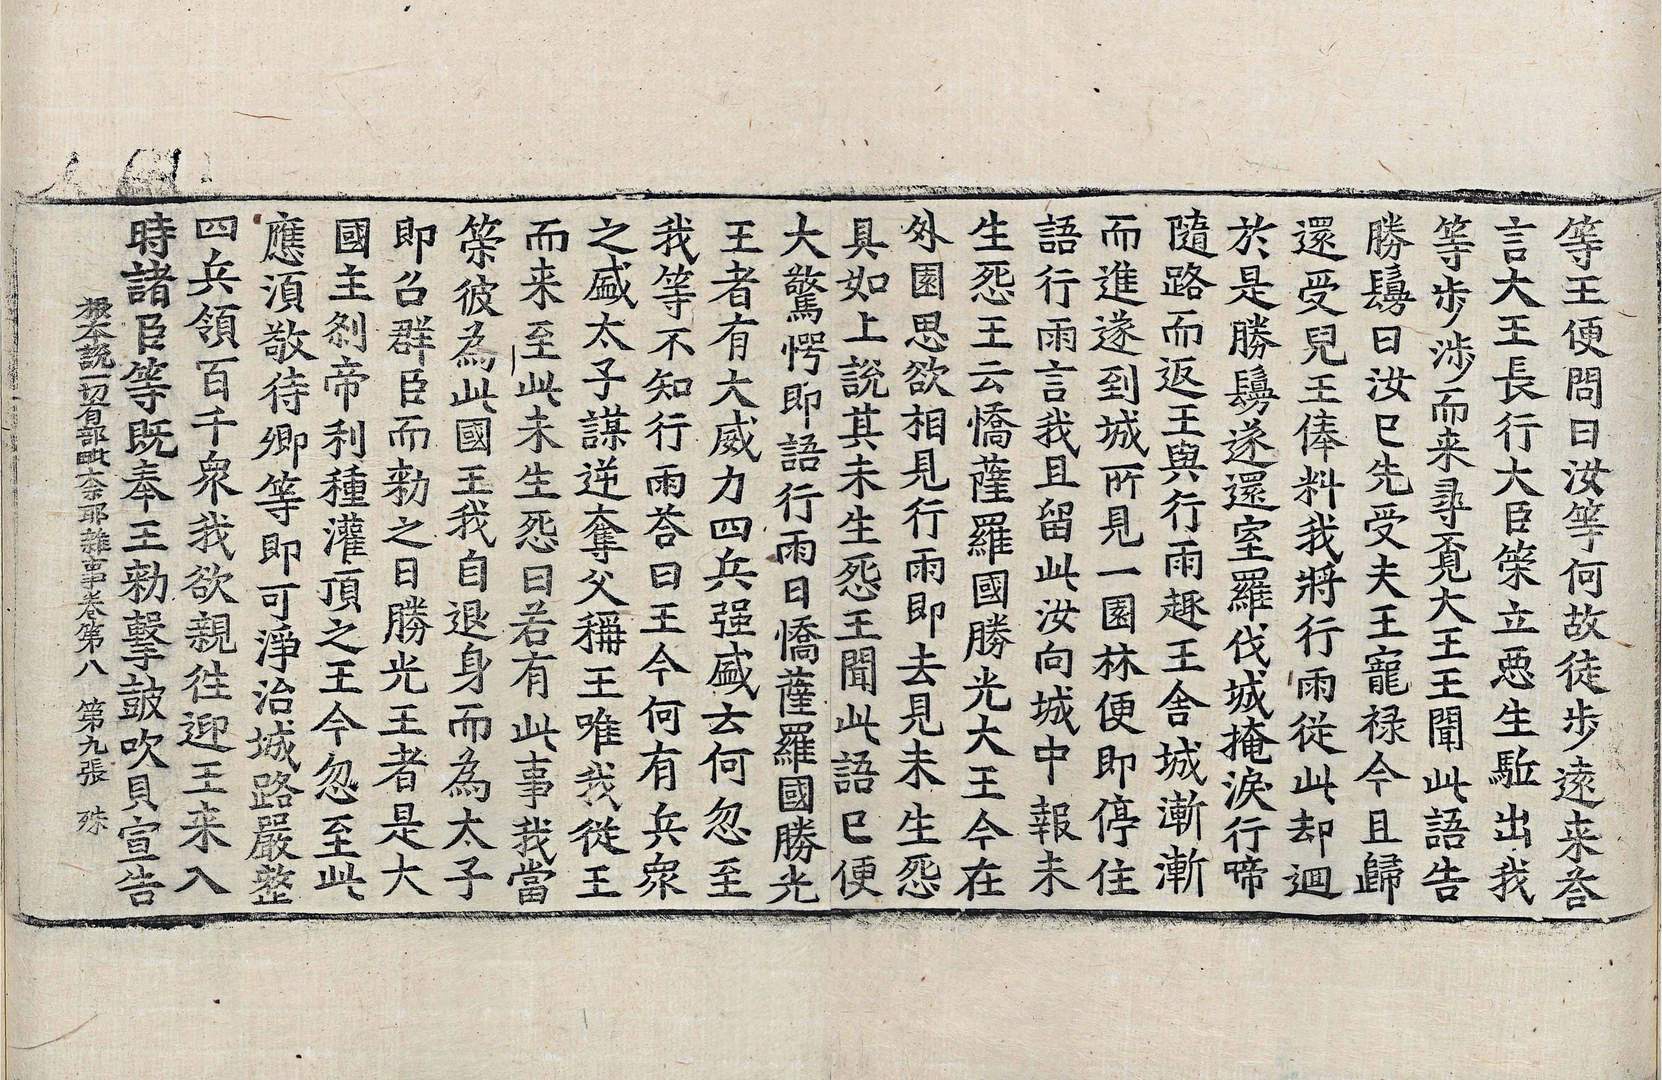 等王便問曰汝等何故徒步遠来荅
言大王長行大臣䇿立惡生駈出我
等步涉而来尋覔大王王聞此語告
勝鬘曰汝已先受夫王寵禄今且歸
還受兒王俸料我將行雨從此却迴
於是勝鬘遂還室羅伐城掩淚行啼
隨路而返王與行雨趣王舍城漸漸
而進遂到城所見一園林便即停住
語行雨言我且留此汝向城中報未
生怨王云憍薩羅國勝光大王今在
外園思欲相見行雨即去見未生怨
具如上說其未生怨王聞此語已便
大驚愕即語行雨曰憍薩羅國勝光
王者有大威力四兵强盛云何忽至
我等不知行雨荅曰王今何有兵衆
之盛太子謀逆奪父稱王唯我從王
而来至此未生怨曰若有此事我當
䇿彼為此國王我自退身而為太子
即召群臣而勑之曰勝光王者是大
國主剎帝利種灌頂之王今忽至此
應湏敬待卿等即可淨治城路嚴整
四兵領百千衆我欲親往迎王来入
時諸臣等既奉王勑擊鼓吹貝宣告
根本說一切有部毗奈耶雜事卷第八　第九張　殊